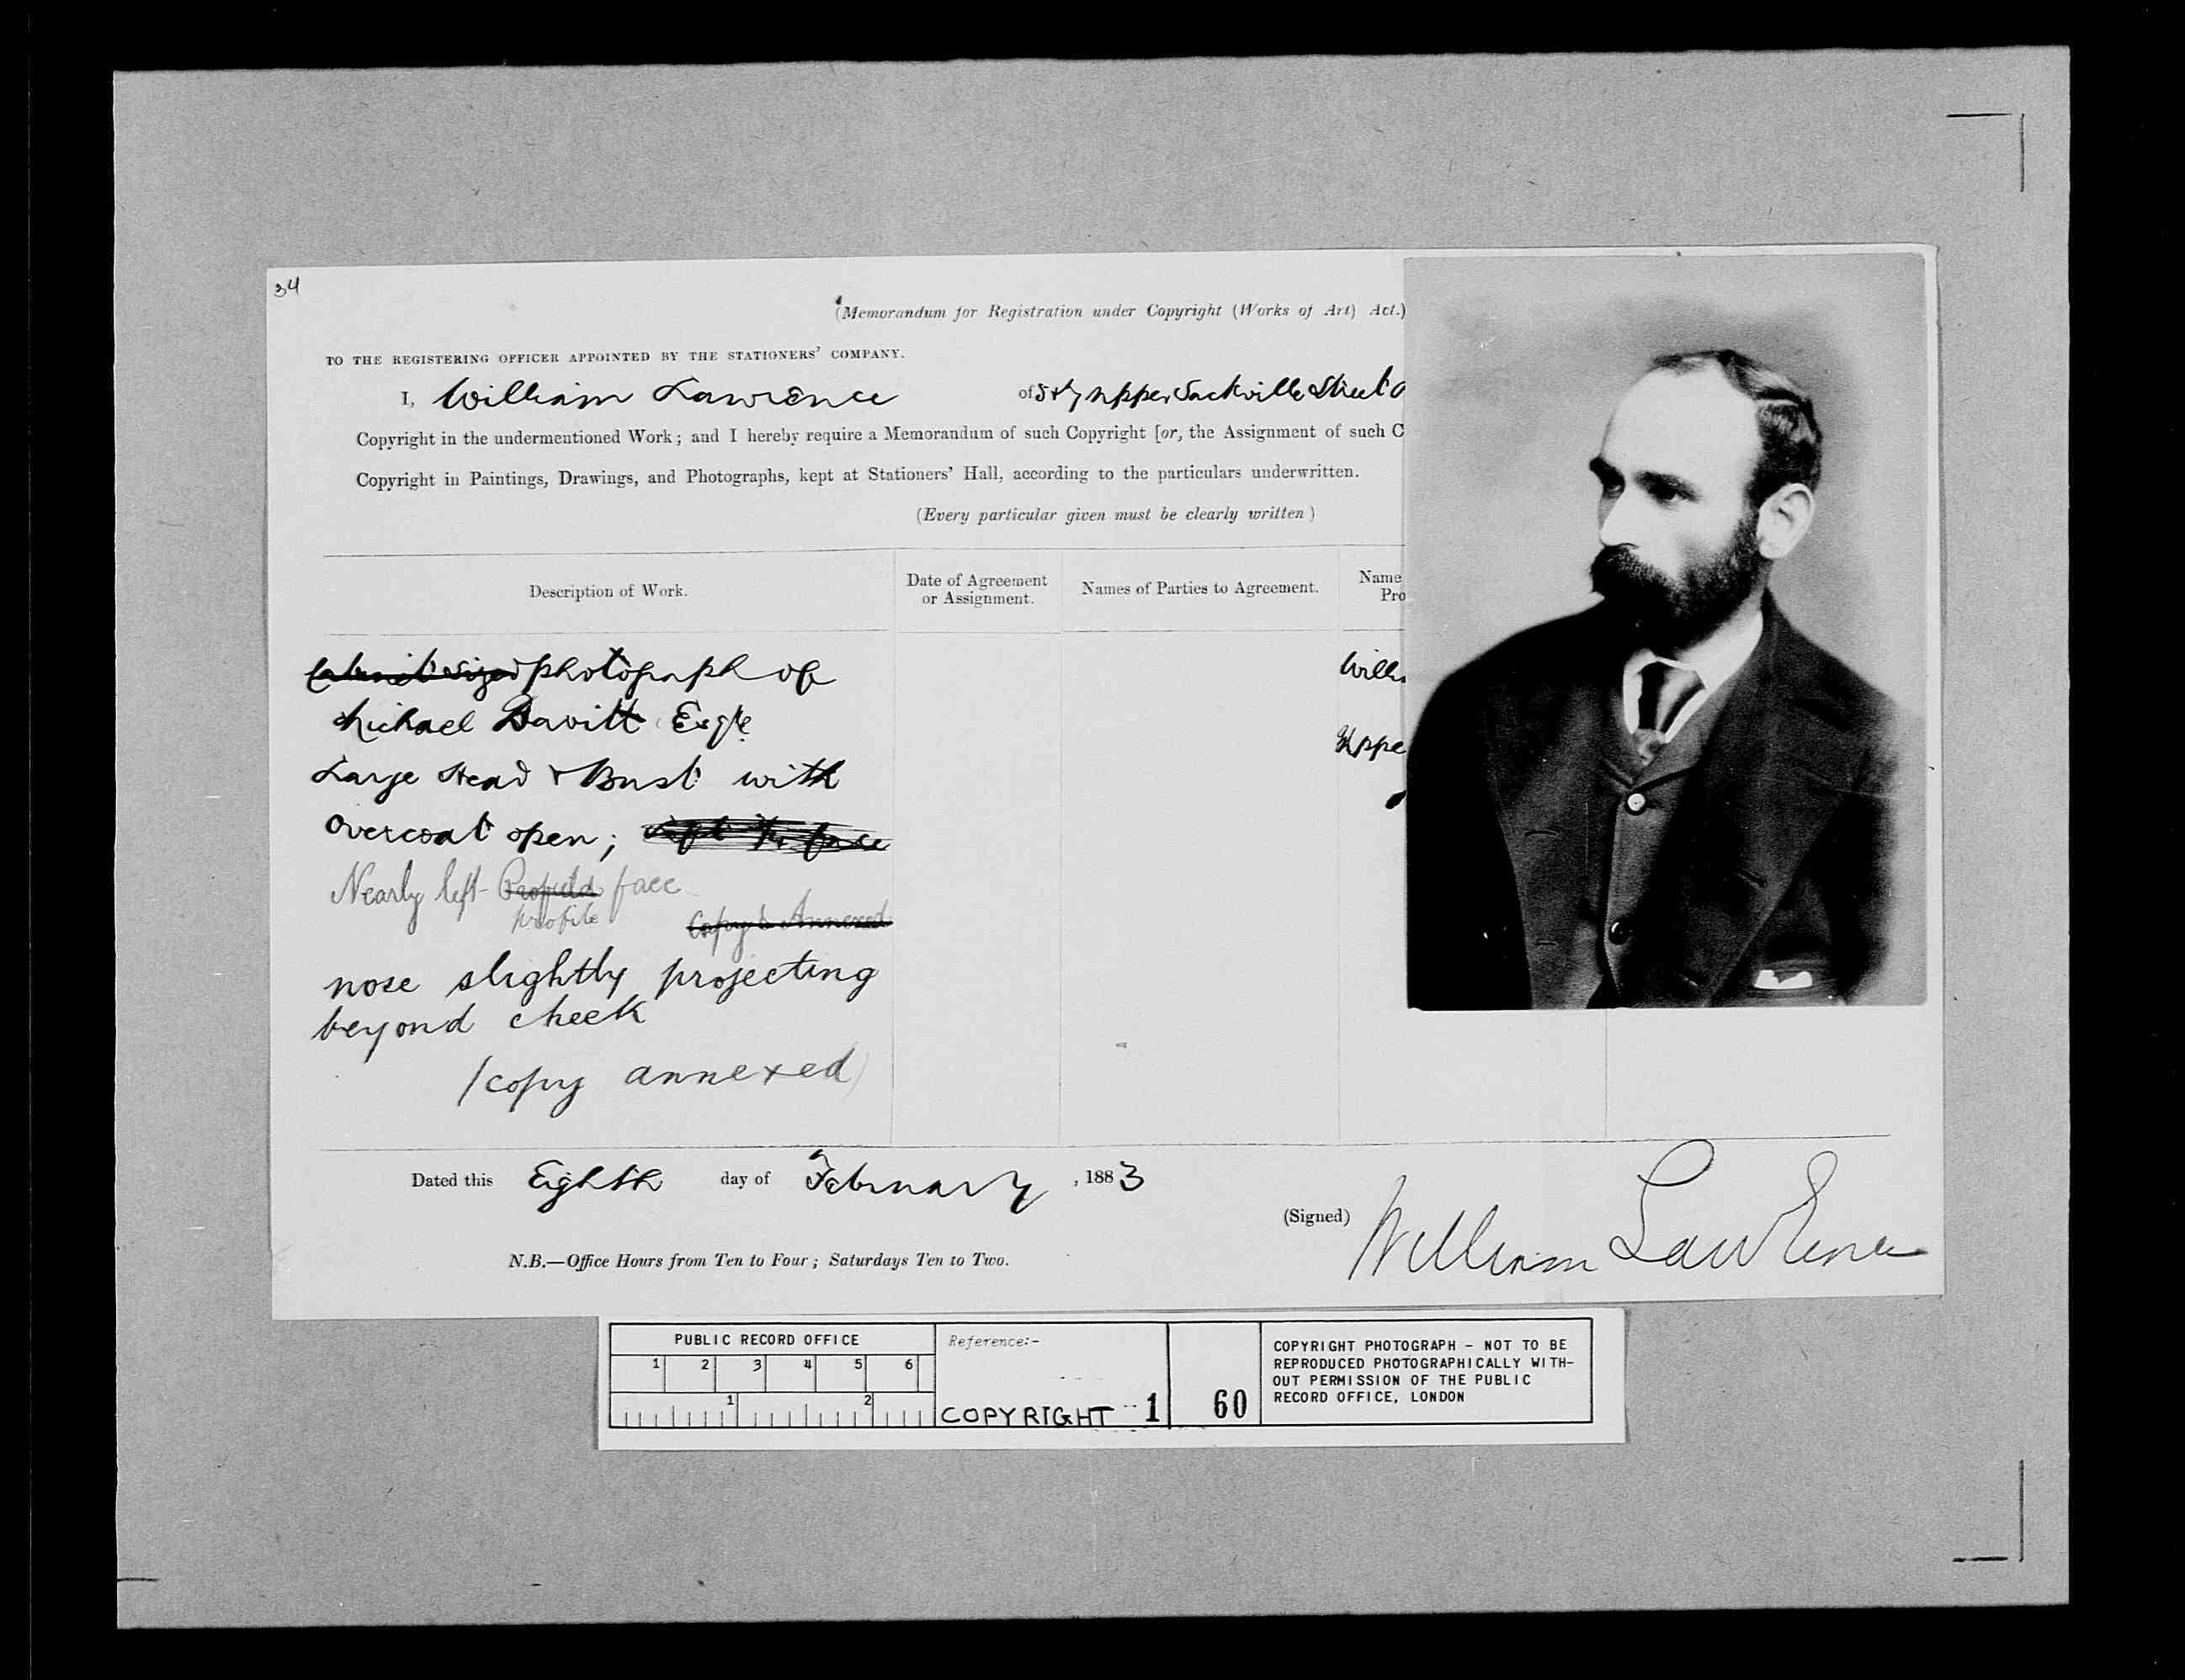 34
(Memorandum for Registration under Copyright (Works of Art) Act.)
TO THE REGISTERING OFFICER APPOINTED BY THE STATIONERS' COMPANY.
I, William Lawrence of 5 & 7 Upper Sackville Street
Copyright in the undermentioned Work; and I hereby require a Memorandum of such Copyright [or, the Assignment of such C
Copyright in Paintings, Drawings, and Photographs, kept at Stationers' Hall, according to the particulars underwritten.
(Every particular given must be clearly written)
Description of Work.
Date of Agreement
or Assignment.
Names of Parties to Agreement.
Name
Pro
Cabinet sized photograph of
Michael Davitt Esqre
Large Head & Bust with
overcoat open; left the face
Nearly left face
profile
Copy Annexed
nose slightly projecting
beyond cheek
(copy annexed)
Willi
Uppe
Dated this Eighth day of February, 1883
(Signed) William Lawrence
N.B.—Office Hours from Ten to Four; Saturdays Ten to Two.
PUBLIC RECORD OFFICE
1 2 3 4 5 6
1 2
Reference:-
COPYRIGHT 1 60
COPYRIGHT PHOTOGRAPH - NOT TO BE
REPRODUCED PHOTOGRAPHICALLY WITH-
OUT PERMISSION OF THE PUBLIC
RECORD OFFICE, LONDON